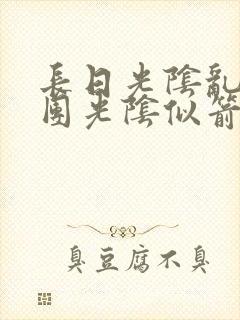 長日光陰亂
團光陰似箭
臭豆腐不臭